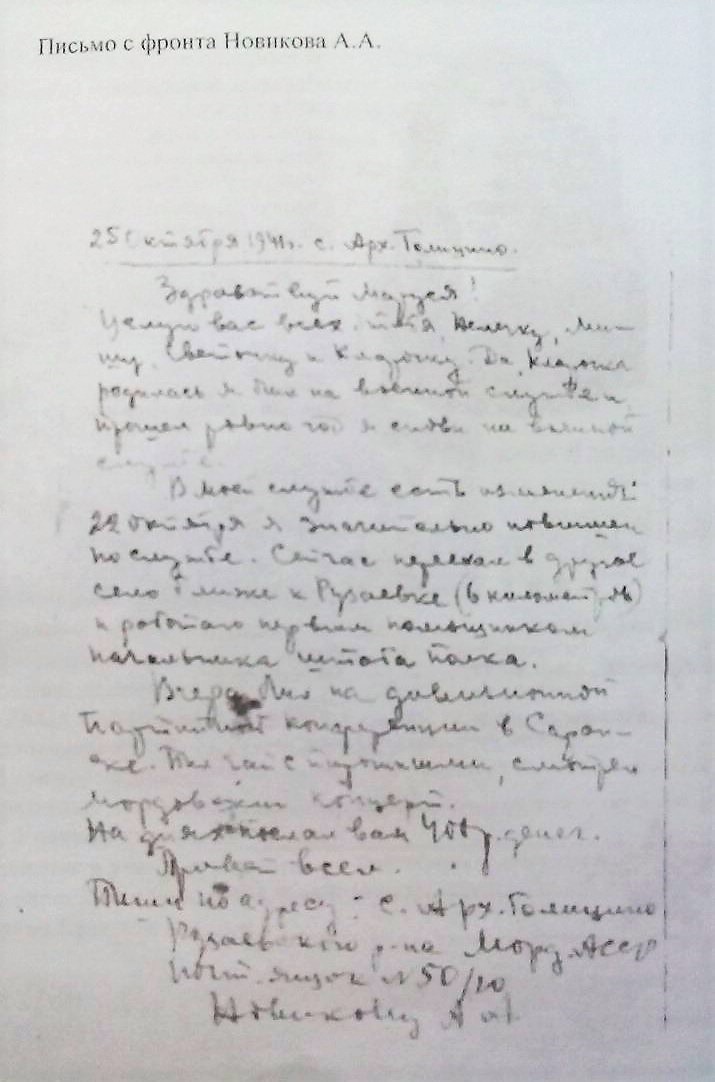 Письмо с фронта Новикова А.А.
25 Октября 1941г. с. Арх. Голицино.
Здравствуй Маруся!
Целую вас всех. тебя, Нелечку, Ми-
шу, Светочку и Кладочку. Да, Кладочка
родилась я был на военной службе и
прошел ровно год я снова на военной
службе.
В моей службе есть изменения:
22 октября я значительно повышен
по службе. Сейчас переехал в другое
село ближе к Рузаевке (6 километров)
и работаю первым помощником
начальника штаба полка.
Вчера был на дивизионной
партийной конференции в Саран-
ске. Пил чай с пирожными, смотрел
мордовский концерт.
На днях послал вам 400 р. денег.
Привет всем.
Пиши по адресу: с. Арх. Голицино
Рузаевского р-на Морд. АССР
почт. ящик №50/10
Новикову А А